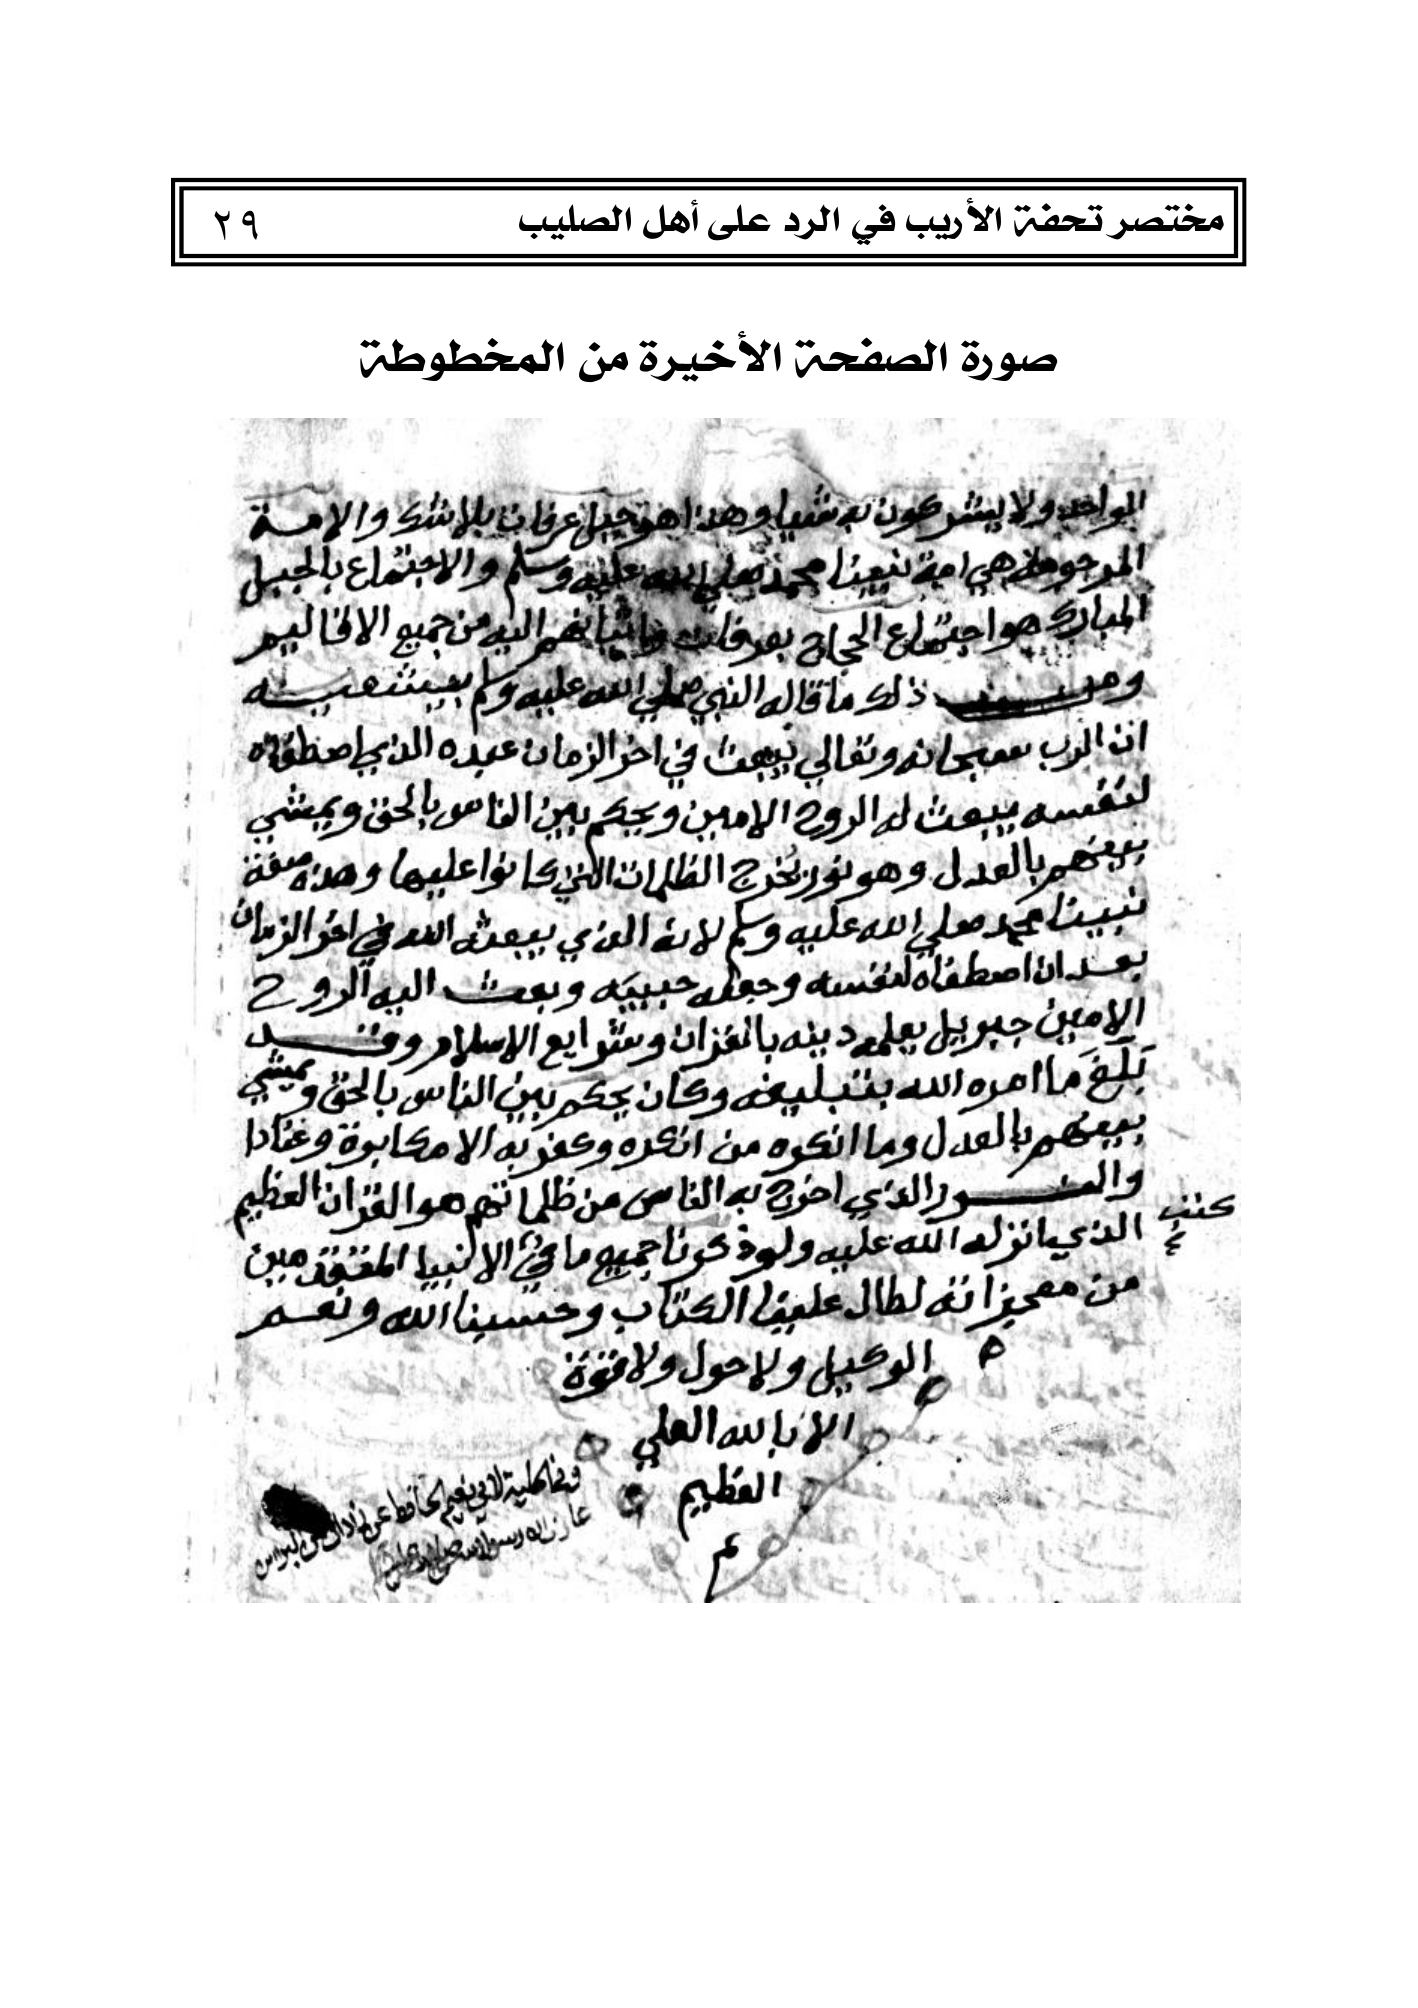 مختصر تحفة الأريب في الرد على أهل الصليب ٢٩
صورة الصفحة الأخيرة من المخطوطة
الواحد ولا يشركون به شيا وهذا هو جبل عرفات بلا شك والامة
المرحومة هي امة نبينا محمد صلي الله عليه وسلم والاجتماع بالجبل
المبارك هو اجتماع الحجاج بعرفات واتيانهم اليه من جميع الاقاليم
ومن ذلك ما قاله النبي صلي الله عليه وسلم
ان الرب سبحانه وتعالي يبعث في اخر الزمان عبده الذي اصطفاه
لنفسه يبعث له الروح الامين ويحكم بين الناس بالحق ويمشي
بينهم بالعدل وهو نور يخرج الظلمات التي كانوا عليها وهذه صفة
نبينا محمد صلي الله عليه وسلم لانه الذي يبعثه الله في اخر الزمان
بعد ان اصطفاه لنفسه وجعله حبيبه وبعث اليه الروح
الامين جبريل يعلمه دينه بالقران وشرايع الاسلام وقد
بلغ ما امره الله بتبليغه وكان يحكم بين الناس بالحق ويمشي
بينهم بالعدل وما انكره من انكره وكفر به الا مكابرة وعنادا
والنور الذي اخرج به الناس من ظلماتهم هو القران العظيم
الذي انزله الله عليه ولو ذكرنا جميع ما في الانبيا المتقدمين
كتب
من معجزاته لطال علينا الكتاب وحسبنا الله ونعم
الوكيل ولا حول ولا قوة
الا بالله العلي
العظيم
تم